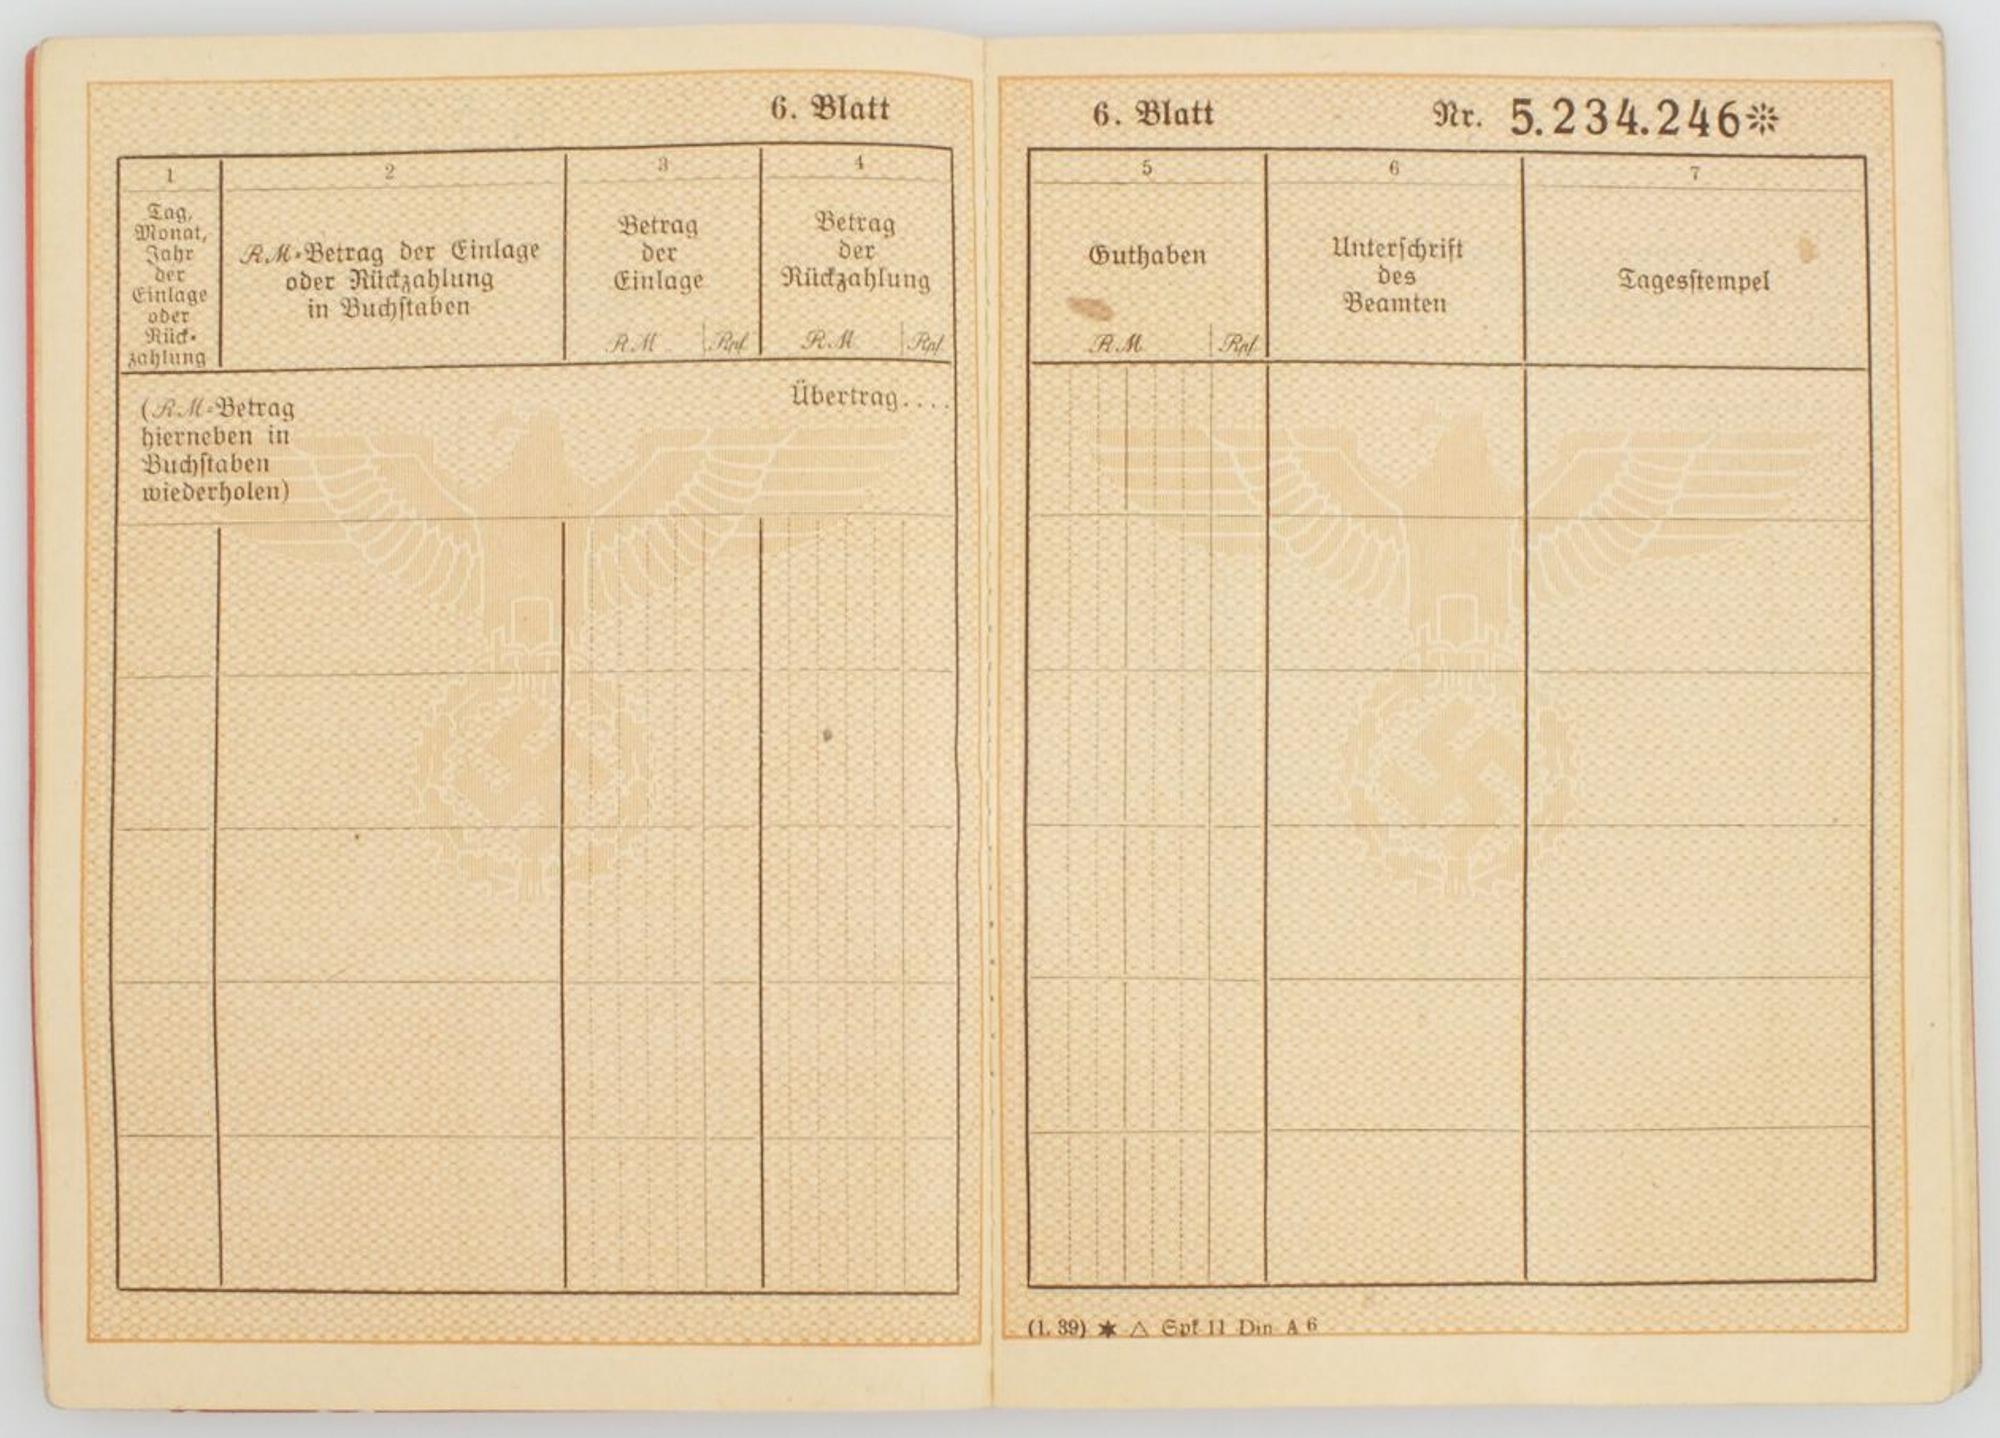 6. Blatt
1
2
3
4
Tag,
Monat,
Jahr
der
Einlage
oder
Rück-
zahlung
RM-Betrag der Einlage
oder Rückzahlung
in Buchstaben
Betrag
der
Einlage
RM Rpf
Betrag
der
Rückzahlung
RM Rpf
(RM-Betrag
hierneben in
Buchstaben
wiederholen)
Übertrag....
6. Blatt Nr. 5.234.246
5
6
7
Guthaben
RM Rpf
Unterschrift
des
Beamten
Tagesstempel
(1. 39) ★ △ Spk 11 Din A 6